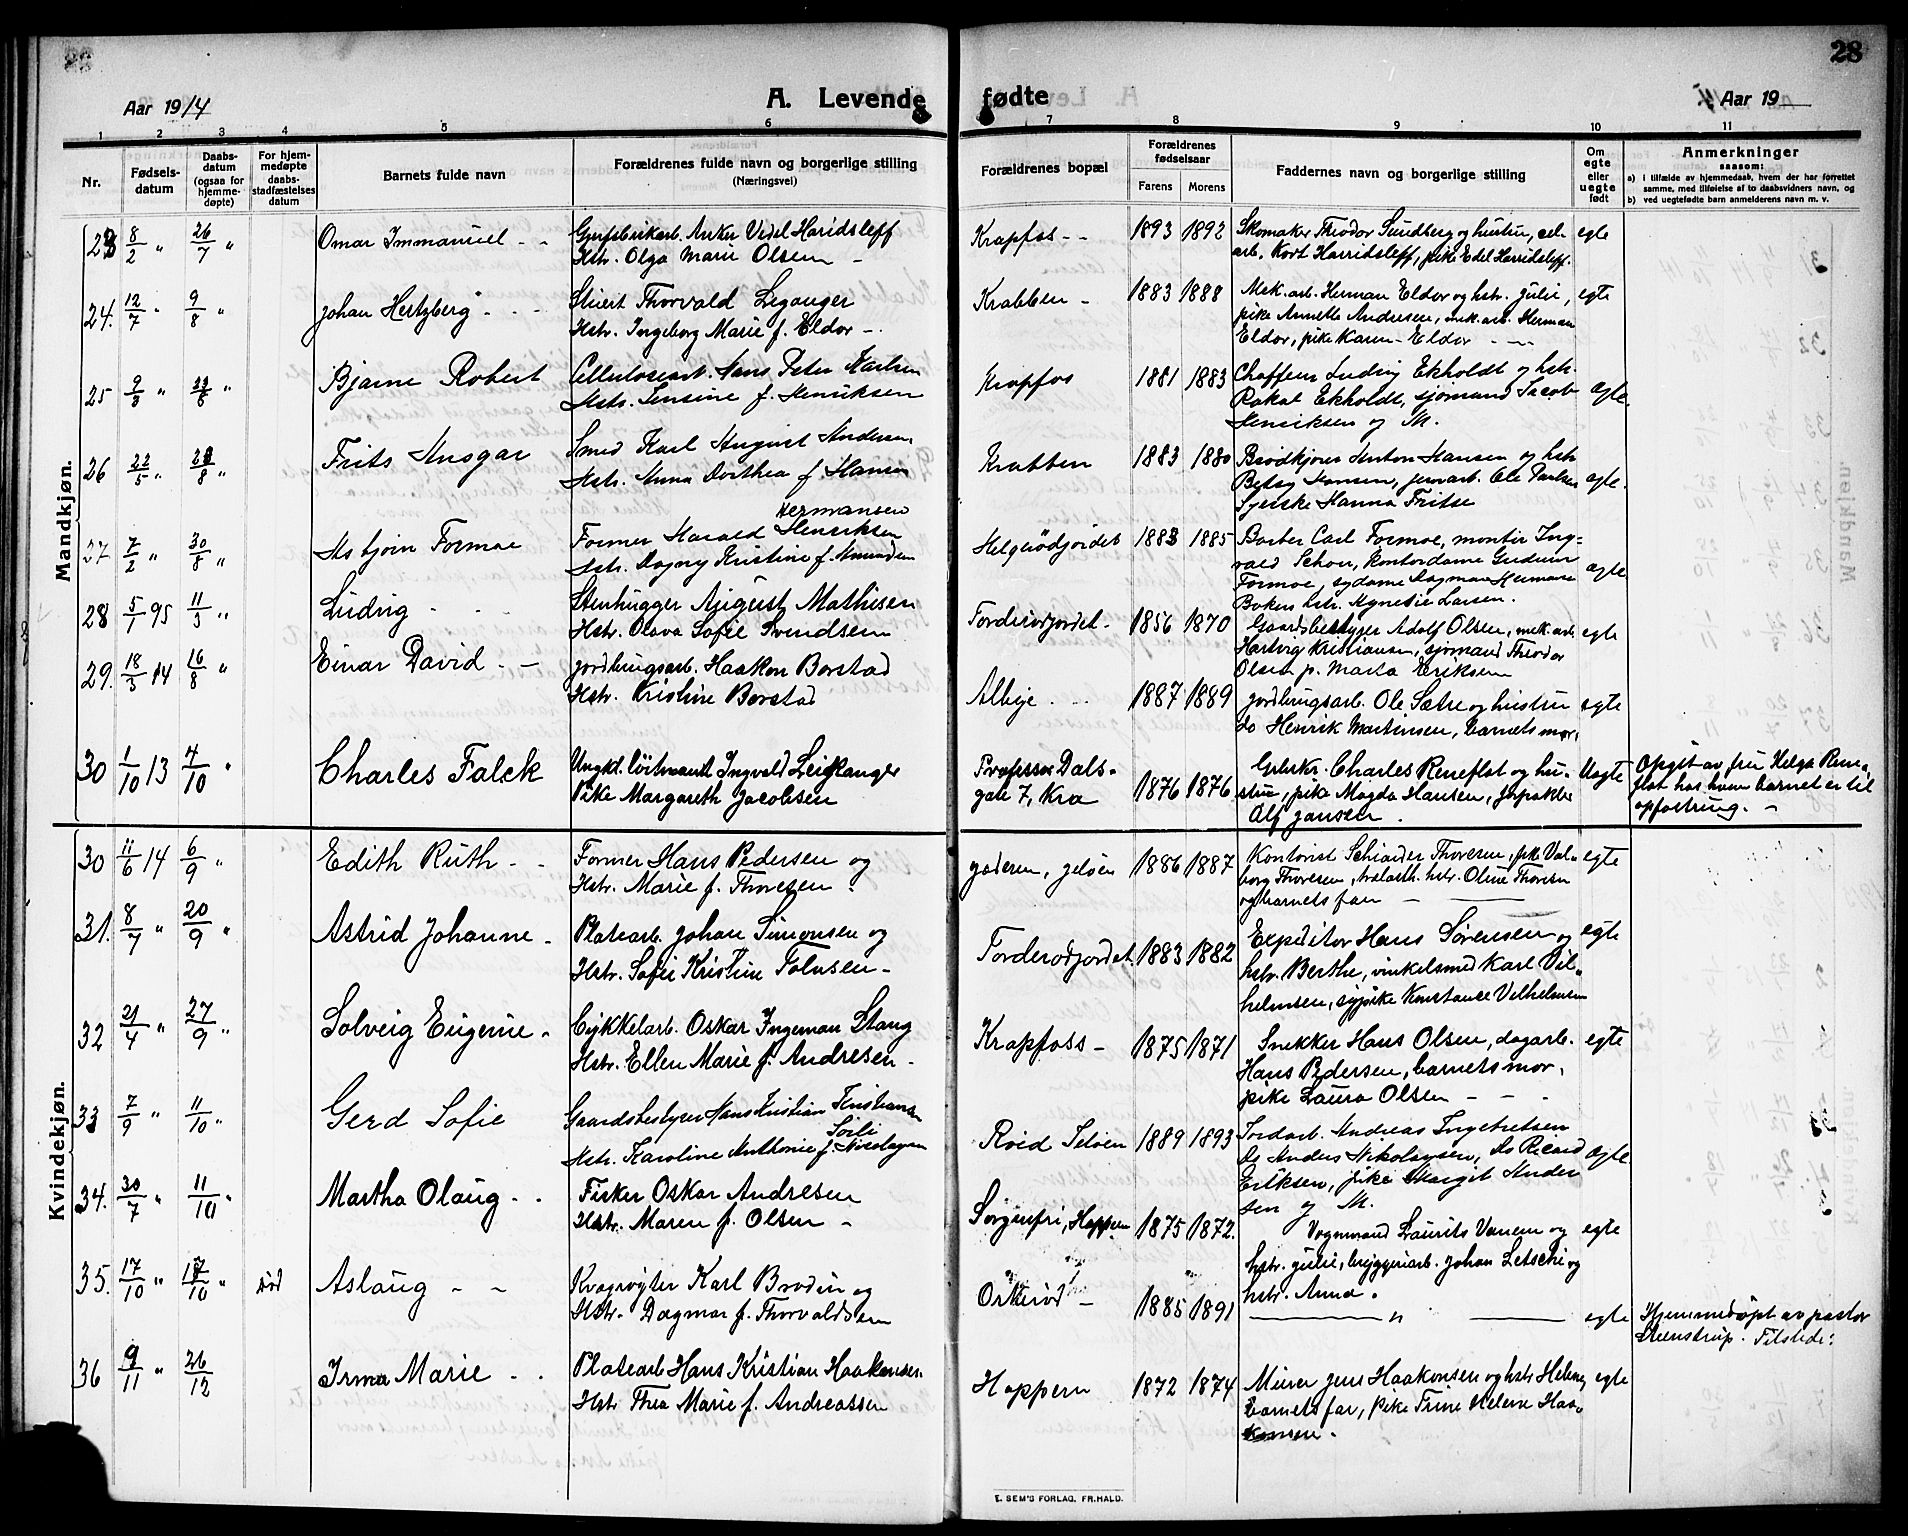 28
Aar 1914
A. Levende fødte
Aar 19
1 2 3 4 5 6 7 8 9 10 11
Nr.
Fødsels-
datum
Daabs-
datum
(ogsaa for
hjemme-
døpte)
For hjem-
medøpte
daabs-
stadfæstelses
datum
Barnets fulde navn
Forældrenes fulde navn og borgerlige stilling
(Næringsvei)
Forældrenes bopæl
Forældrenes
fødselsaar
Farens Morens
Faddernes navn og borgerlige stilling
Om
egte
eller
uegte
født
Anmerkninger
saasom:
a) i tilfælde av hjemmedaab, hvem der har forrettet
samme, med tilføielse af to daabsvidners navn, og
b) ved uegtefødte barn anmelderens navn m. v.
Mandkjøn.
23 8/2 " 26/7 " Omar Immanuel - - Anker Vedel Haridsleff Krapfos - - 1893 1892 Skomaker Theodor Sundberg og hustru, egte
Hstr. Olga Marie Olsen - arb. Kort Harridsleff, pike Edel Harridsleff.
24. 12/7 " 9/8 " Johan Hertzberg - - - Stuert Thorvald Leganger Krabben - 1883 1888 Mek. arb. Herman Eldor og hstr. Julie, egte
Hstr. Ingeborg Marie f. Eldor - pike Annette Andresen, mek. arb. Herman
Eldor, pike Karen Eldor - -
25 9/3 " 23/8 " Bjarne Robert Cellulosearb. Hans Peter Karlsen Krapfos 1881 1883 Chaffeur Ludvig Ekholdt og hstr.
Hstr. Jensine f. Henriksen Rakel Ekholdt, sjømand Jacob egte.
Henriksen og M.
26 22/5 " 23/8 " Frits Ansgar Smed Karl August Andersen Krabben 1883 1880 Brødkjører Anton Hansen og hstr
Hstr. Anna Dorthea f. Hansen Betsy Hansen, jernarb. Ole Paulsen egte.
Syerske Hanna Fritse
27 7/2 " 30/8 " Asbjørn Formoe Former Harald Henriksen Hermansen Helgerödjordet 1883 1885 Barber Carl Formoe, montør Ing-
Hstr. Dagny Kristine f. Amundsen vald Schou, kontordame Gudrun
Formoe, sydame Dagmar Hermans egte
28 5/1 95 11/3 " Ludvig - - Stenhugger August Mathisen - 1856 1870 Bakers hstr. Agnethe Larsen.
Hstr. Olava Sofie Svendsen Gaardsbestyrer Adolf Olsen, mek. arb. egte
Hartvig Kristiansen, sjømand Theodor
29. 18/3 14 16/8 " Einar David - - Jordbrugsarb. Haakon Borstad Olsen p. Marta Eriksen
Hstr. Kristine Borstad Alleje - - 1887 1889 Jordbrugsarb. Ole Sætre og hustru egte
do Henrik Martinsen, barnets mor.
30 1/10 13 4/10 " Charles Falck Ungkl. löitnant Ingvald Leikanger Professor Dals- 1876 1876 Charles Reneflot og hu- Uegte Opgit av fru Helga Rene-
Pike Margareth Jacobsen gate 7, Kra stru, pike Magda Hansen, flot hos hvem barnet er til
Alf Jansen. opfostring. -
Kvindekjøn.
30 11/6 14 6/9 " Edith Ruth - - Former Hans Pedersen og Jeløen 1886 1887 Kontorist Thoresen, pike Val- egte
Hstr. Marie f. Thoresen borg Thoresen, hstr. Oline Thoresen
og barnets far -
31. 8/7 " 20/9 " Astrid Johanne - Platearb. Johan Simonsen og Torderødjordet 1883 1882 Expeditor Hans Sørensen og egte
Hstr. Sofie Kristine Tolusen - hstr. Berthe, vinkelsmed Karl Vil-
helmsen, sypike Konstance Vilhelmsen
32 21/4 " 27/9 " Solveig Eugenie - Cykkelarb. Oskar Ingeman Stang Krapfoss - 1875 1871 Snekker Hans Olsen, dagarb. egte
Hstr. Ellen Marie f. Andresen - Hans Pedersen, barnets mor,
pike Laura Olsen - - -
33 7/9 " 11/10 " Gerd Sofie Gaardsbestyrer Hans Kristian Kristiansen Jeløen 1889 1893 Jordarb. Andreas Ingebretsen
Hstr. Karoline Anthonie Sofie f. Nicolaysen Do Anders Nikolaysen, do Ricard egte
Eriksen, pike Margit Ander
sen og M.
34. 30/7 " 11/10 " Martha Olaug - - Fisker Oskar Andresen Sorgenfri, Hoppern 1875 1872. Vognmand Laurits Vanem og egte
Hstr. Maren f. Olsen - hstr. Julie, bryggeriarb. Johan Letschi og
hstr. Anna.
35. 17/10 " 17/10 " död Aslaug - - Kvægrøgter Karl Brodin og Orkeröd - 1885 1891 " egte Hjemmedøpt av pastor
Hstr. Dagmar f. Thorvaldsen Steenstrup. Tilstede:
36 9/11 " 26/12 Irma Marie - - Platearb Hans Kristian Haakonsen Hoppern 1872 1874 Murer Jens Haakonsen og hstr Helene, egte
Hstr Thea Marie f. Andreassen barnets far, pike Trine Helene Haa-
konsen.
E. SEM'S FORLAG, FR.HALD.